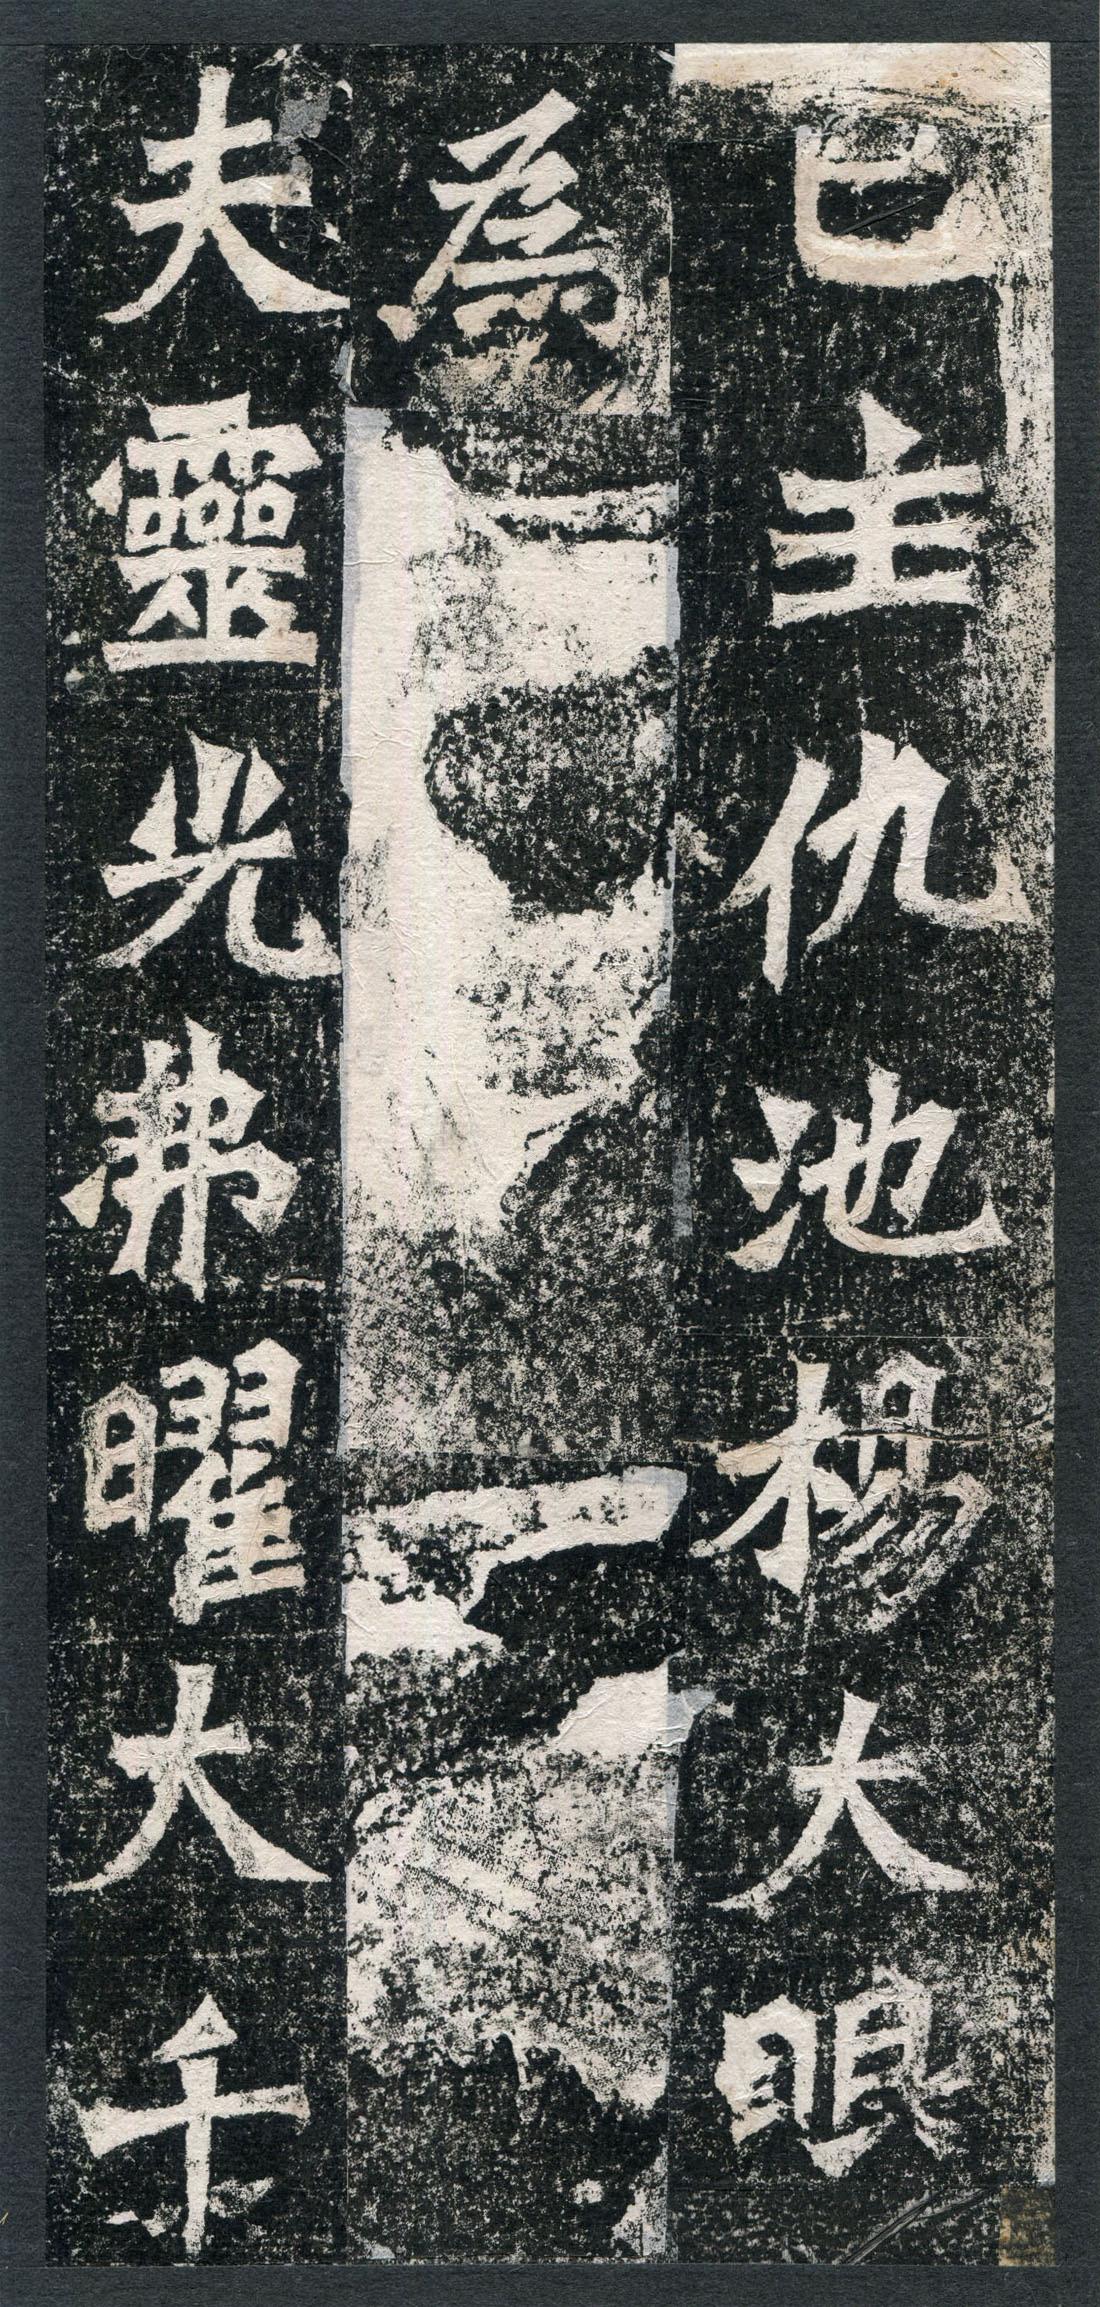 邑主仇池楊大眼
為
夫靈光弗曜大千